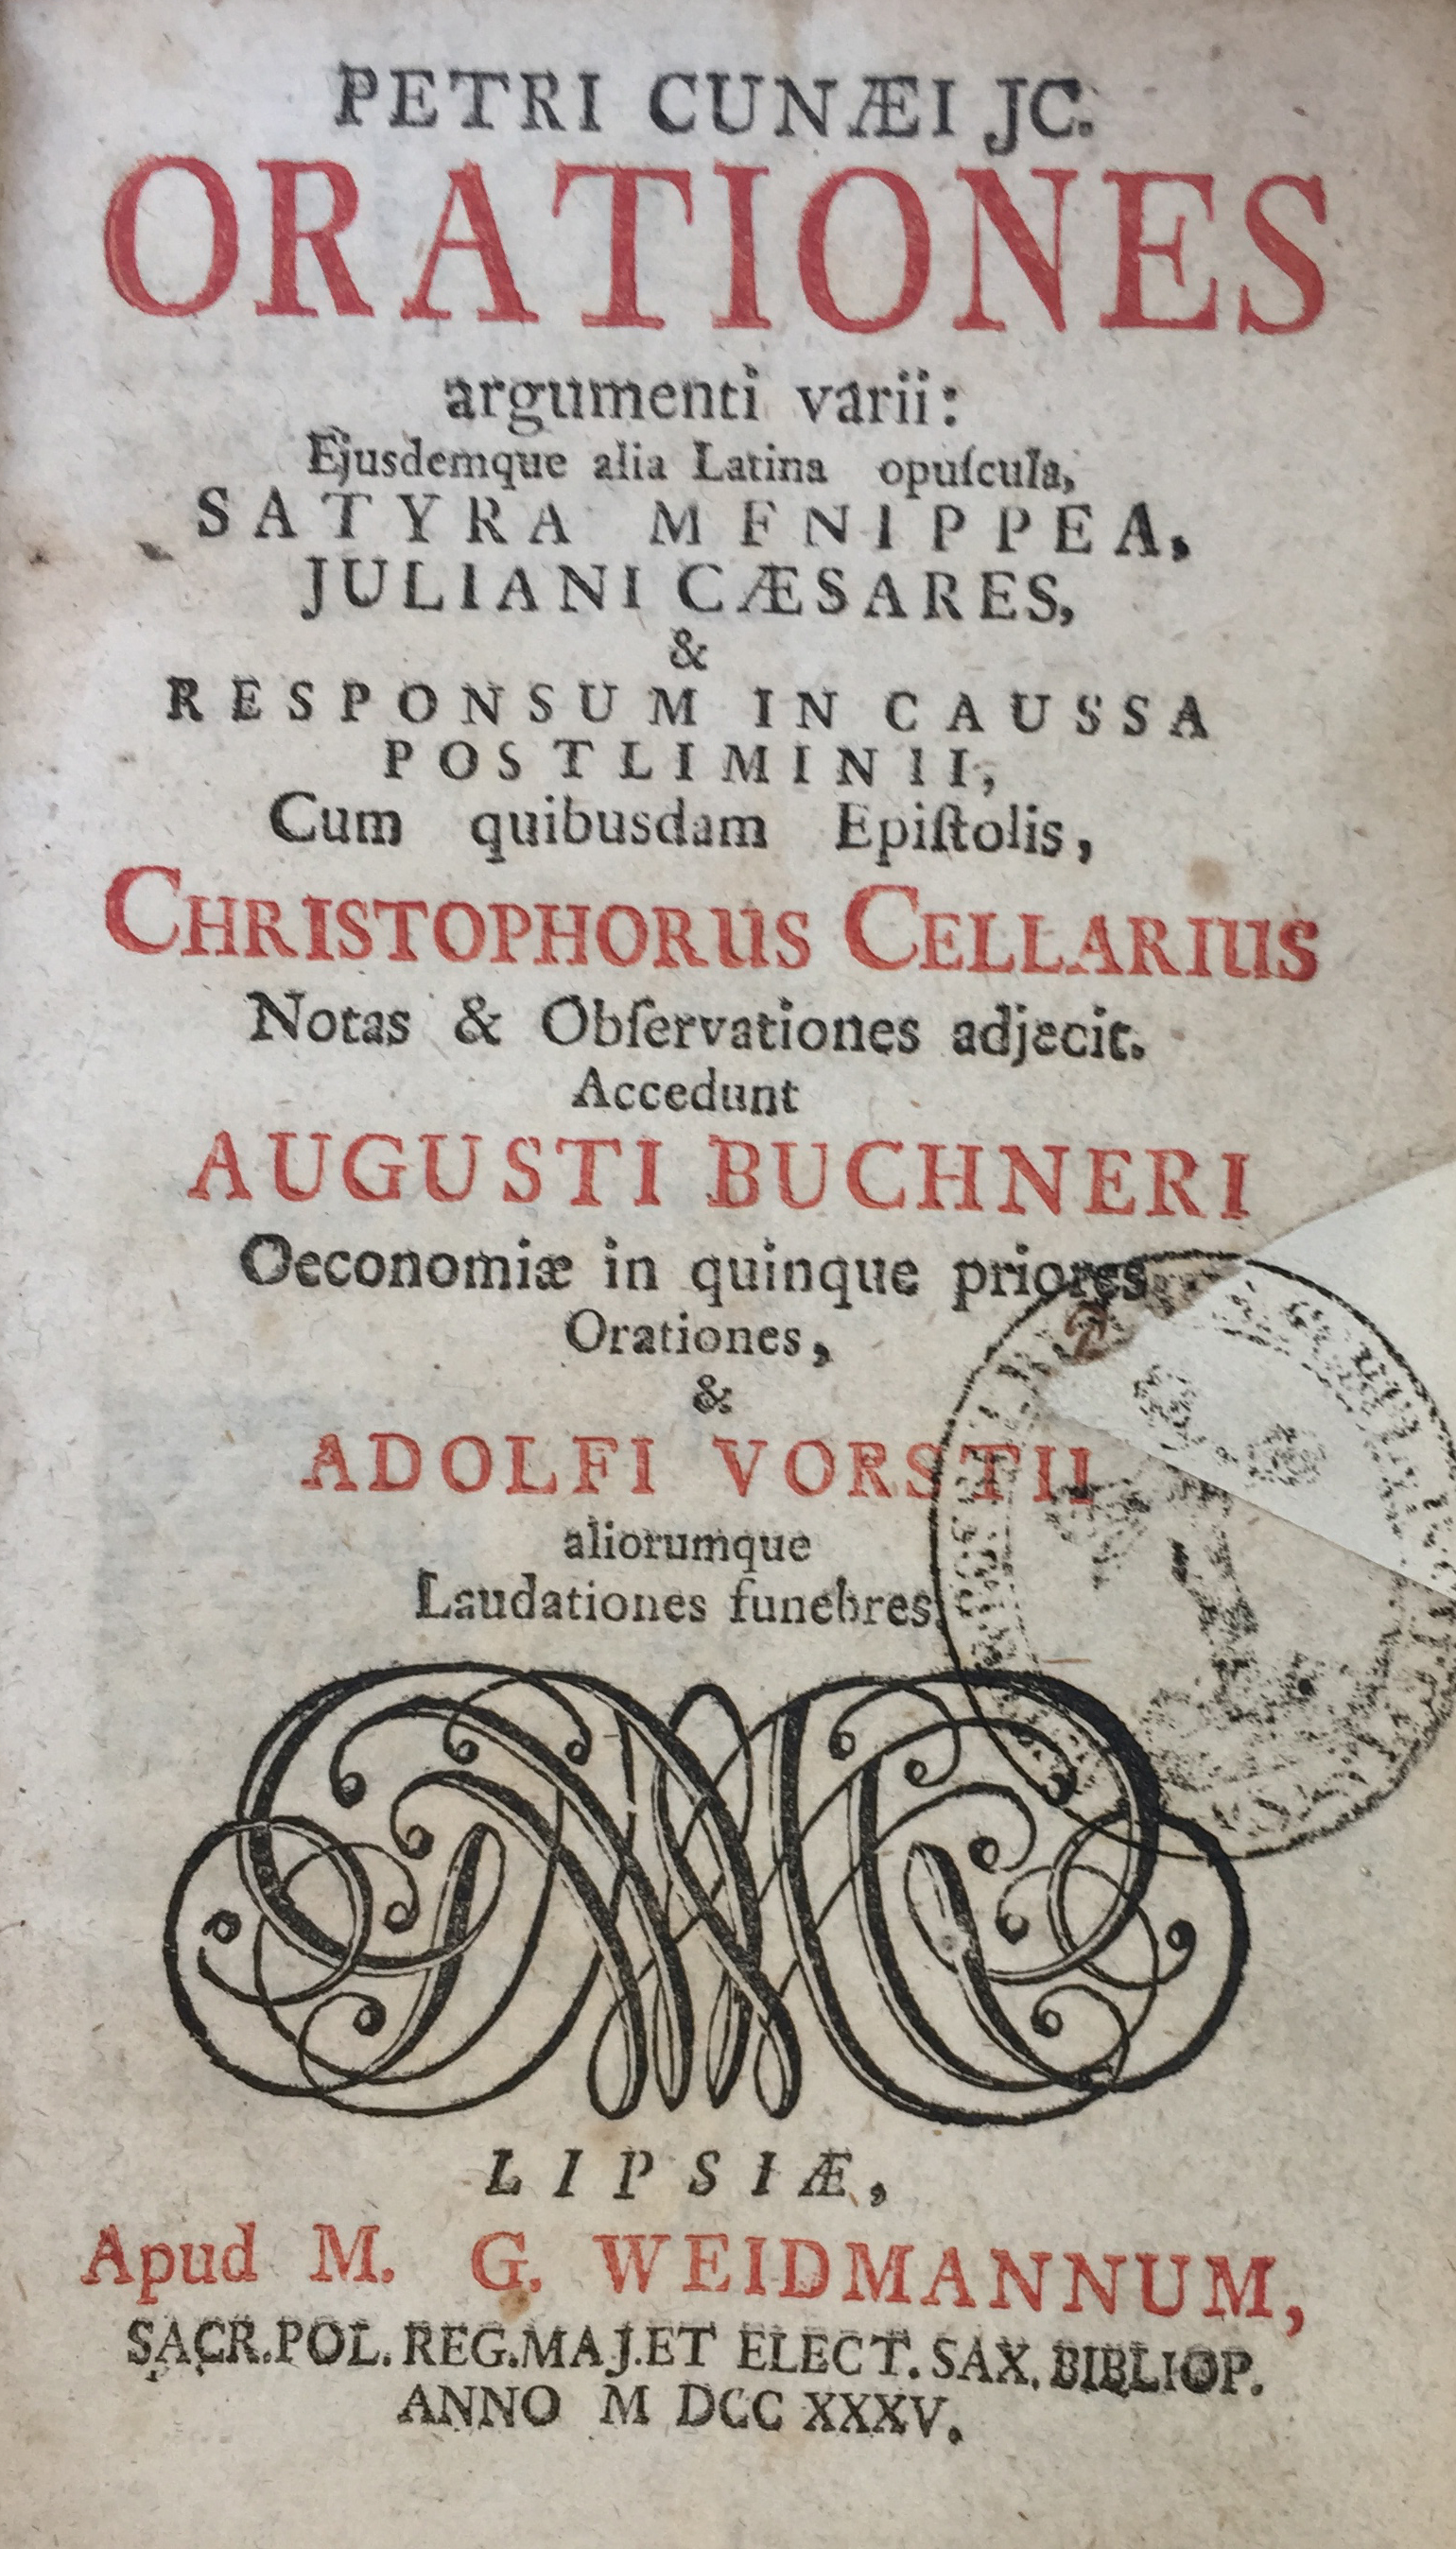 PETRI CUNÆI JC.
ORATIONES
argumenti varii:
Ejusdemque alia Latina opuſcula,
SATYRA MENIPPEA,
JULIANI CÆSARES,
&
RESPONSUM IN CAUSSA
POSTLIMINII,
Cum quibusdam Epiſtolis,
CHRISTOPHORUS CELLARIUS
Notas & Obſervationes adjecit.
Accedunt
AUGUSTI BUCHNERI
Oeconomiæ in quinque priores
Orationes,
&
ADOLFI VORSTII
aliorumque
Laudationes funebres.
LIPSIÆ,
Apud M. G. WEIDMANNUM,
SACR.POL. REG.MAJ.ET ELECT. SAX. BIBLIOP.
ANNO M DCC XXXV.